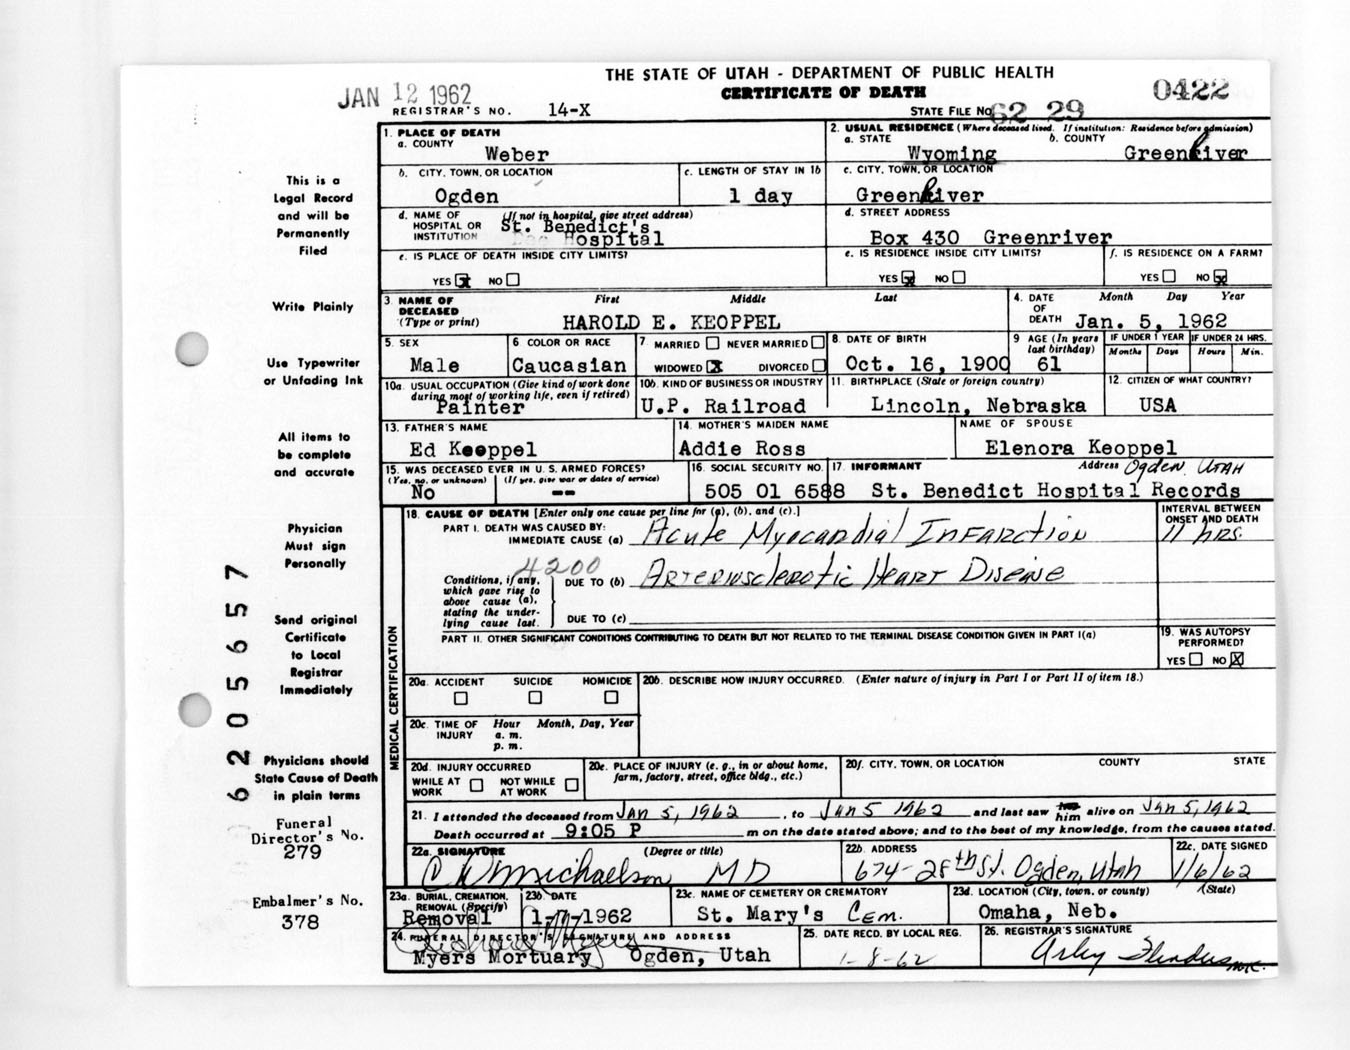 THE STATE OF UTAH - DEPARTMENT OF PUBLIC HEALTH
CERTIFICATE OF DEATH
0422
JAN 12 1962
REGISTRAR'S NO. 14-X
STATE FILE NO. 62 29
1. PLACE OF DEATH
a. COUNTY
Weber
2. USUAL RESIDENCE (Where deceased lived. If institution: Residence before admission)
a. STATE
Wyoming
b. COUNTY
GreenRiver
b. CITY, TOWN, OR LOCATION
Ogden
c. LENGTH OF STAY IN 1b
1 day
c. CITY, TOWN, OR LOCATION
GreenRiver
d. NAME OF HOSPITAL OR INSTITUTION
(If not in hospital, give street address)
St. Benedict's
Hospital
d. STREET ADDRESS
Box 430 Greenriver
e. IS PLACE OF DEATH INSIDE CITY LIMITS?
YES x NO
e. IS RESIDENCE INSIDE CITY LIMITS?
YES x NO
f. IS RESIDENCE ON A FARM?
YES NO x
3. NAME OF DECEASED (Type or print)
First Middle Last
HAROLD E. KEOPPEL
4. DATE OF DEATH
Month Day Year
Jan. 5, 1962
5. SEX
Male
6 COLOR OR RACE
Caucasian
7. MARRIED NEVER MARRIED
WIDOWED x DIVORCED
8. DATE OF BIRTH
Oct. 16, 1900
9 AGE (In years last birthday)
61
IF UNDER 1 YEAR
Months Days
IF UNDER 24 HRS.
Hours Min.
10a. USUAL OCCUPATION (Give kind of work done during most of working life, even if retired)
Painter
10b. KIND OF BUSINESS OR INDUSTRY
U.P. Railroad
11. BIRTHPLACE (State or foreign country)
Lincoln, Nebraska
12. CITIZEN OF WHAT COUNTRY?
USA
13. FATHER'S NAME
Ed Keoppel
14. MOTHER'S MAIDEN NAME
Addie Ross
NAME OF SPOUSE
Elenora Keoppel
15. WAS DECEASED EVER IN U. S. ARMED FORCES?
(Yes, no, or unknown) (If yes, give war or dates of service)
No --
16. SOCIAL SECURITY NO.
505 01 6588
17. INFORMANT
Address Ogden, Utah
St. Benedict Hospital Records
MEDICAL CERTIFICATION
18. CAUSE OF DEATH [Enter only one cause per line for (a), (b), and (c).]
INTERVAL BETWEEN ONSET AND DEATH
PART I. DEATH WAS CAUSED BY:
IMMEDIATE CAUSE (a) Acute Myocardial Infarction
11 hrs.
4200
Conditions, if any, which gave rise to above cause (a), stating the underlying cause last.
DUE TO (b) Arteriosclerotic Heart Disease
DUE TO (c)
PART II. OTHER SIGNIFICANT CONDITIONS CONTRIBUTING TO DEATH BUT NOT RELATED TO THE TERMINAL DISEASE CONDITION GIVEN IN PART I(a)
19. WAS AUTOPSY PERFORMED?
YES NO X
20a. ACCIDENT SUICIDE HOMICIDE
20b. DESCRIBE HOW INJURY OCCURRED. (Enter nature of injury in Part I or Part II of item 18.)
20c. TIME OF INJURY
Hour Month, Day, Year
a. m.
p. m.
20d. INJURY OCCURRED
WHILE AT WORK NOT WHILE AT WORK
20e. PLACE OF INJURY (e. g., in or about home, farm, factory, street, office bldg., etc.)
20f. CITY, TOWN, OR LOCATION COUNTY STATE
21. I attended the deceased from Jan 5, 1962, to Jan 5 1962 and last saw him alive on Jan 5, 1962
Death occurred at 9:05 P m on the date stated above; and to the best of my knowledge, from the causes stated.
22a. SIGNATURE (Degree or title)
C W Michaelson MD
22b. ADDRESS
674-28th St. Ogden, Utah
22c. DATE SIGNED
1/6/62
23a. BURIAL, CREMATION, REMOVAL (Specify)
Removal
23b. DATE
1-7-1962
23c. NAME OF CEMETERY OR CREMATORY
St. Mary's Cem.
23d. LOCATION (City, town, or county) (State)
Omaha, Neb.
24. FUNERAL DIRECTOR'S SIGNATURE AND ADDRESS
Myers
Myers Mortuary Ogden, Utah
25. DATE RECD. BY LOCAL REG.
1-8-62
26. REGISTRAR'S SIGNATURE
This is a
Legal Record
and will be
Permanently
Filed
Write Plainly
Use Typewriter
or Unfading Ink
All items to
be complete
and accurate
Physician
Must sign
Personally
Send original
Certificate
to Local
Registrar
Immediately
Physicians should
State Cause of Death
in plain terms
Funeral
Director's No.
279
Embalmer's No.
378
620 5657